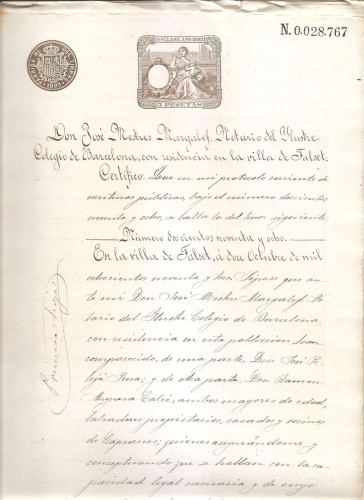 N. 0.028.767
5 PESETAS
Don José Mestres Margalef, Notario del Ilustre
Colegio de Barcelona, con residencia en la villa de Falset.
Certifico: Que en mi protocolo corriente de
escrituras públicas, bajo el número doscientos
noventa y ocho, se halla la del tenor siguiente
Número doscientos noventa y ocho.
En la villa de Falset, á doce Octubre de mil
ochocientos noventa y tres. Sépase que an-
te mi Don José Mestres Margalef, No-
tario del Ilustre Colegio de Barcelona,
con residencia en esta población, han
comparecido, de una parte, Don José
y de otra parte, Don Ramon
ambos mayores de edad,
labradores propietarios, casados y vecinos
de Capsanes; quienes asegurándome y
conceptuando que se hallan con la ca-
pacidad legal necesaria y de cuyo